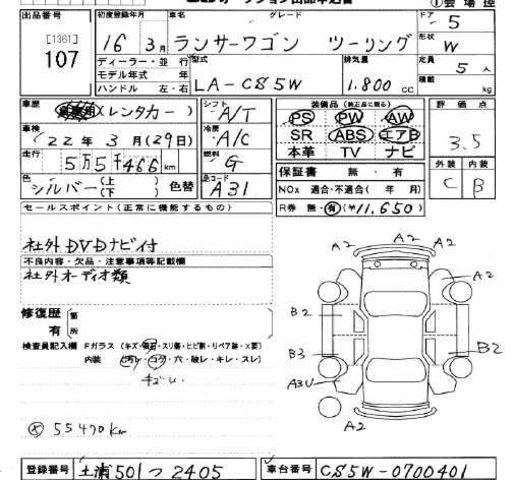 ①会場控
出品番号
[1361]
107
初度登録年月 車名 グレード
16年 3月 ランサーワゴン ツーリング
ドア 5
形状 W
ディーラー・並行
モデル年式 年
ハンドル 左・右
型式 LA-CS5W
排気量 1.800 cc
定員 5人
積載 kg
車歴 (レンタカー)
シフト A/T
装備品(純正品に限る)
PS PW AW
SR ABS エアB
本革 TV ナビ
評価点
3.5
車検 22年 3月(29日)
冷房 A/C
走行 5万5千466km
燃料 G
保証書 無・有
外装 内装
C B
色 シルバー(上下) 色替
色コード A31
NOx 適合・不適合( 年 月)
R券 無・有(¥11.650)
セールスポイント(正常に機能するもの)
社外DVDナビ付
不良内容・欠品・注意事項等記載欄
社外オーディオ類
修復歴 有 箇所
検査員記入欄 Fガラス(キズ・飛石・スリ傷・ヒビ割・リペア跡・X要)
内装 (汚レ・コゲ・穴・破レ・キレ・スレ)
55470km
A2 A2 A2
A2
B2
B3
B2
A3U
A2
登録番号 土浦501つ2405
車台番号 CS5W-0700401